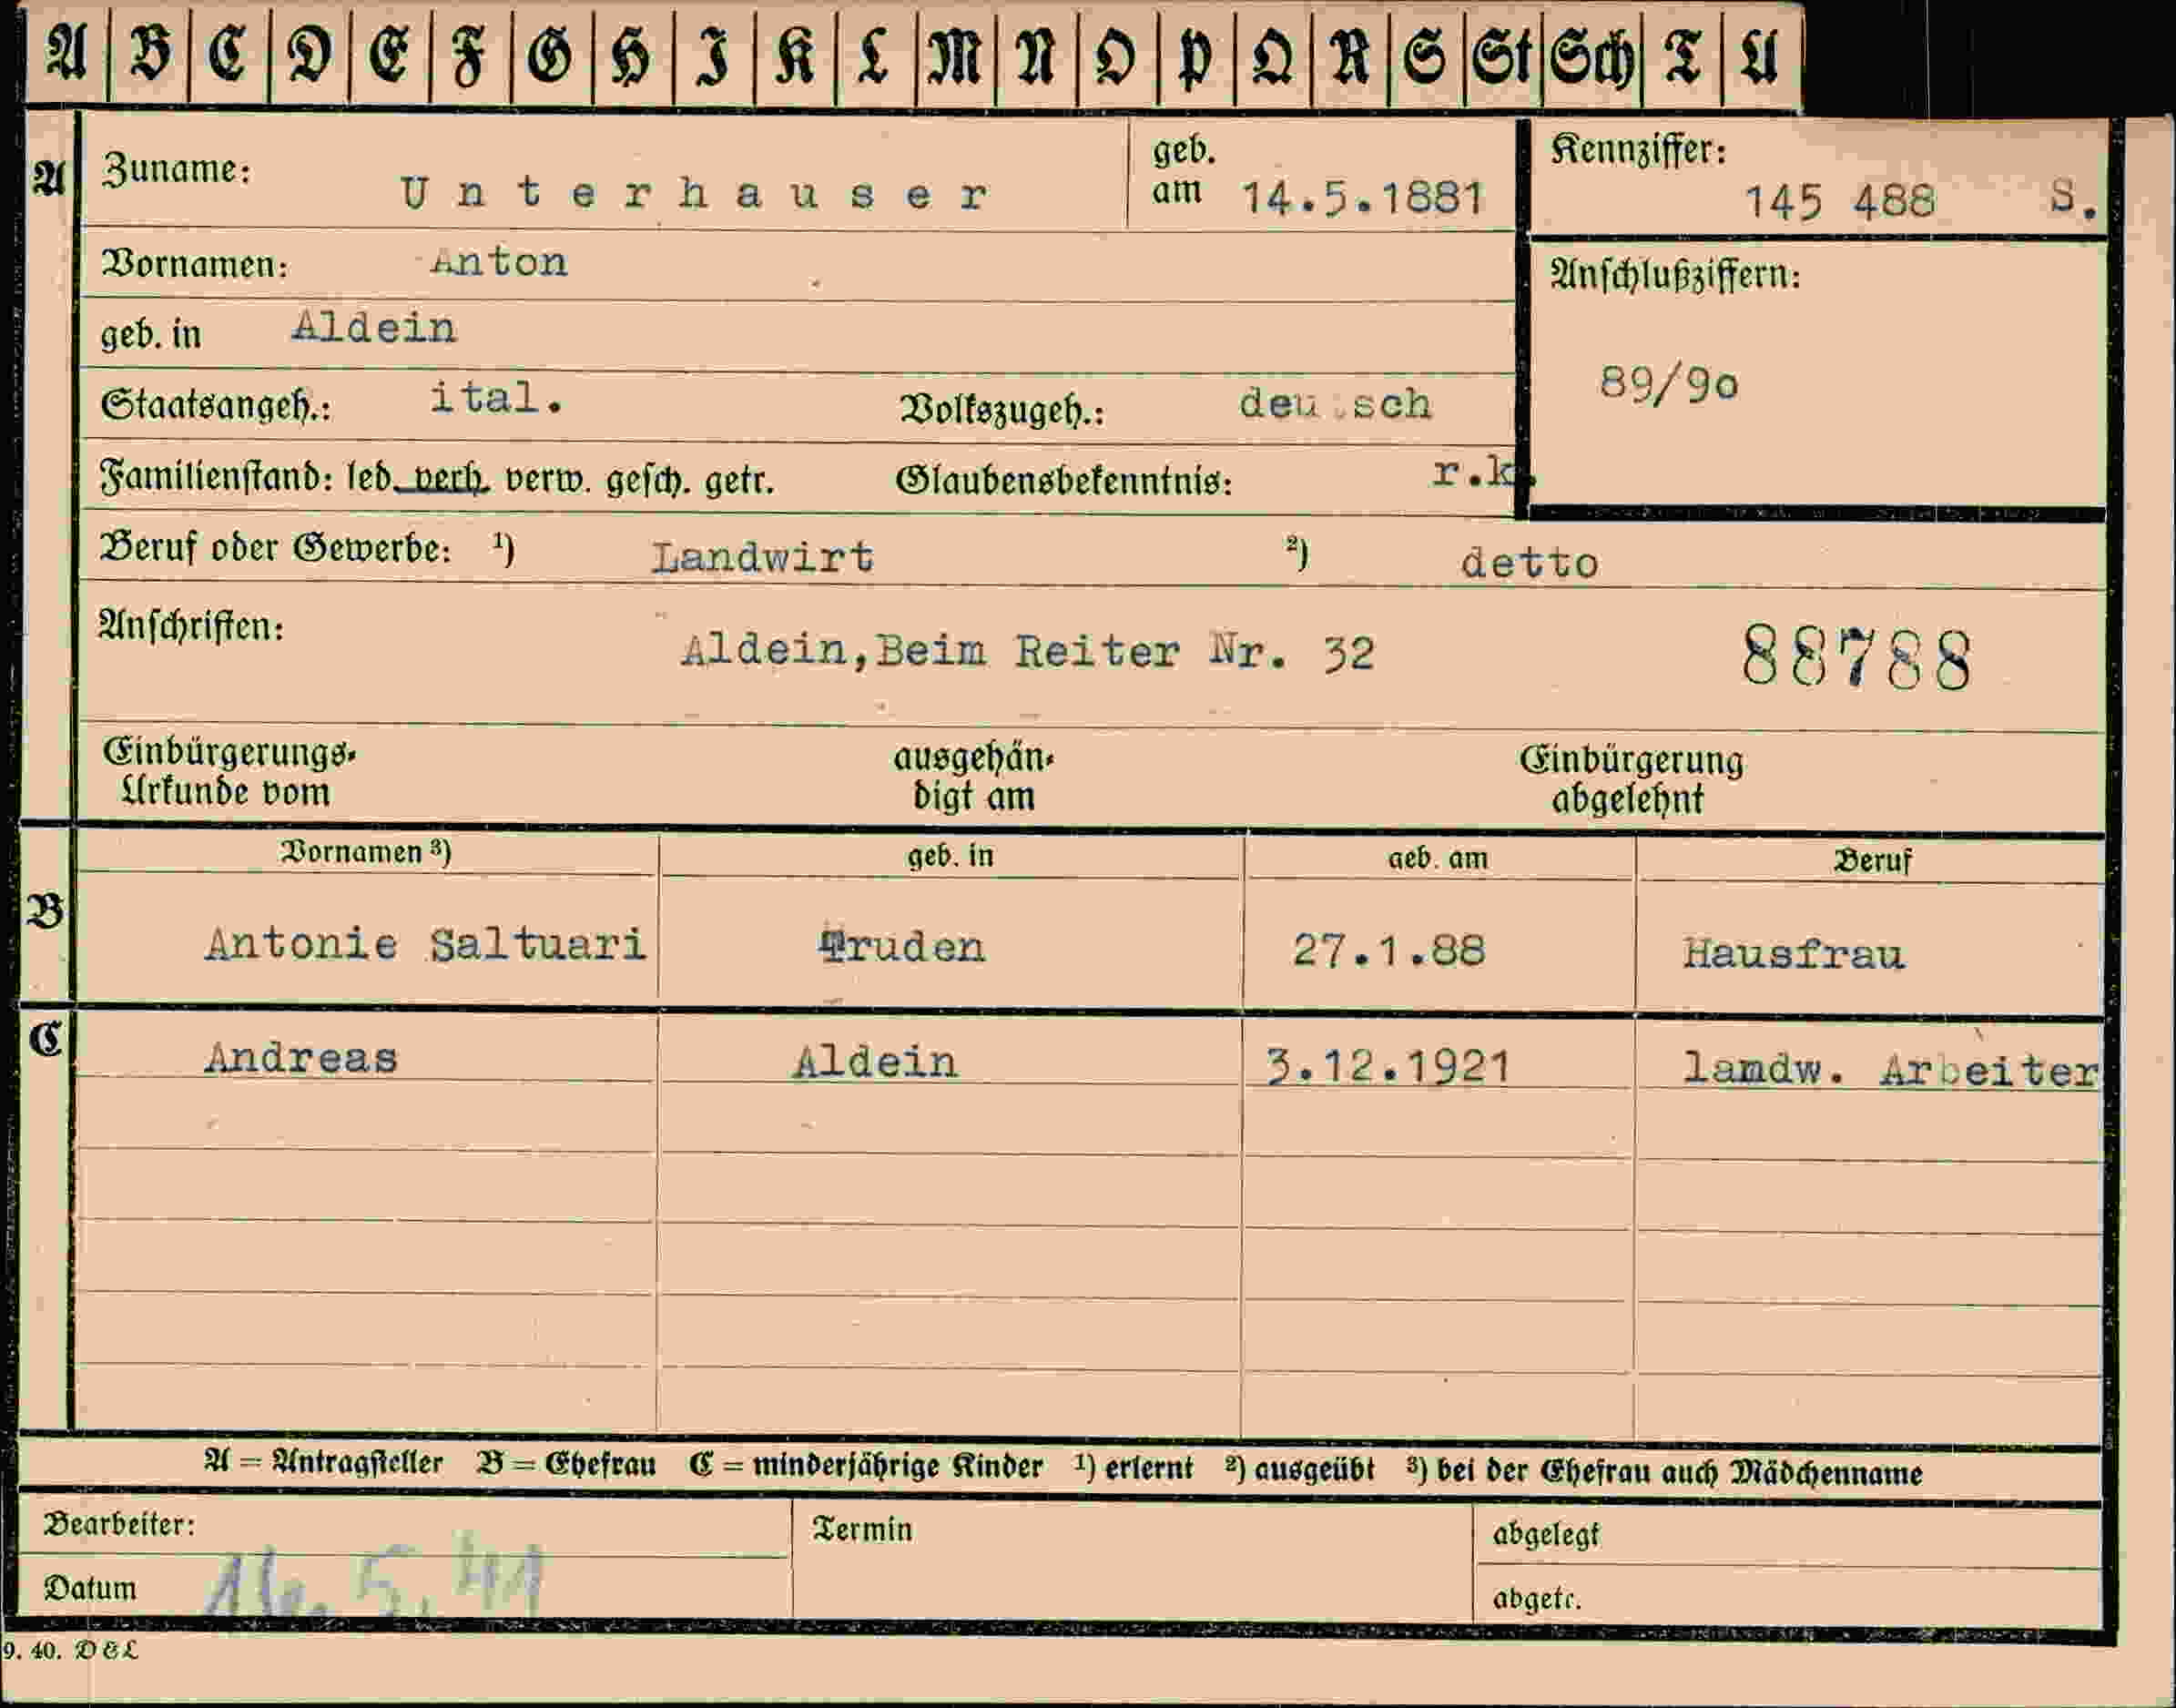 A B C D E F G H I K L M N O P Q R S St Sch T U
A Zuname: Unterhauser geb. am 14.5.1881 Kennziffer: 145 488 S.
Vornamen: Anton Anschlußziffern:
geb. in Aldein
89/90
Staatsangeh.: ital. Volkszugeh.: deutsch
Familienstand: led. verh. verw. gesch. getr. Glaubensbekenntnis: r.k.
Beruf oder Gewerbe: ¹) Landwirt ²) detto
Anschriften: Aldein,Beim Reiter Nr. 32 88788
Einbürgerungs- ausgehän- Einbürgerung
Urkunde vom digt am abgelehnt
Vornamen ³) geb. in geb. am Beruf
B Antonie Saltuari Truden 27.1.88 Hausfrau
C Andreas Aldein 3.12.1921 lamdw. Arbeiter
A = Antragsteller B = Ehefrau C = minderjährige Kinder ¹) erlernt ²) ausgeübt ³) bei der Ehefrau auch Mädchenname
Bearbeiter: Termin abgelegt
Datum 16.5.41 abgetr.
9. 40. D & L